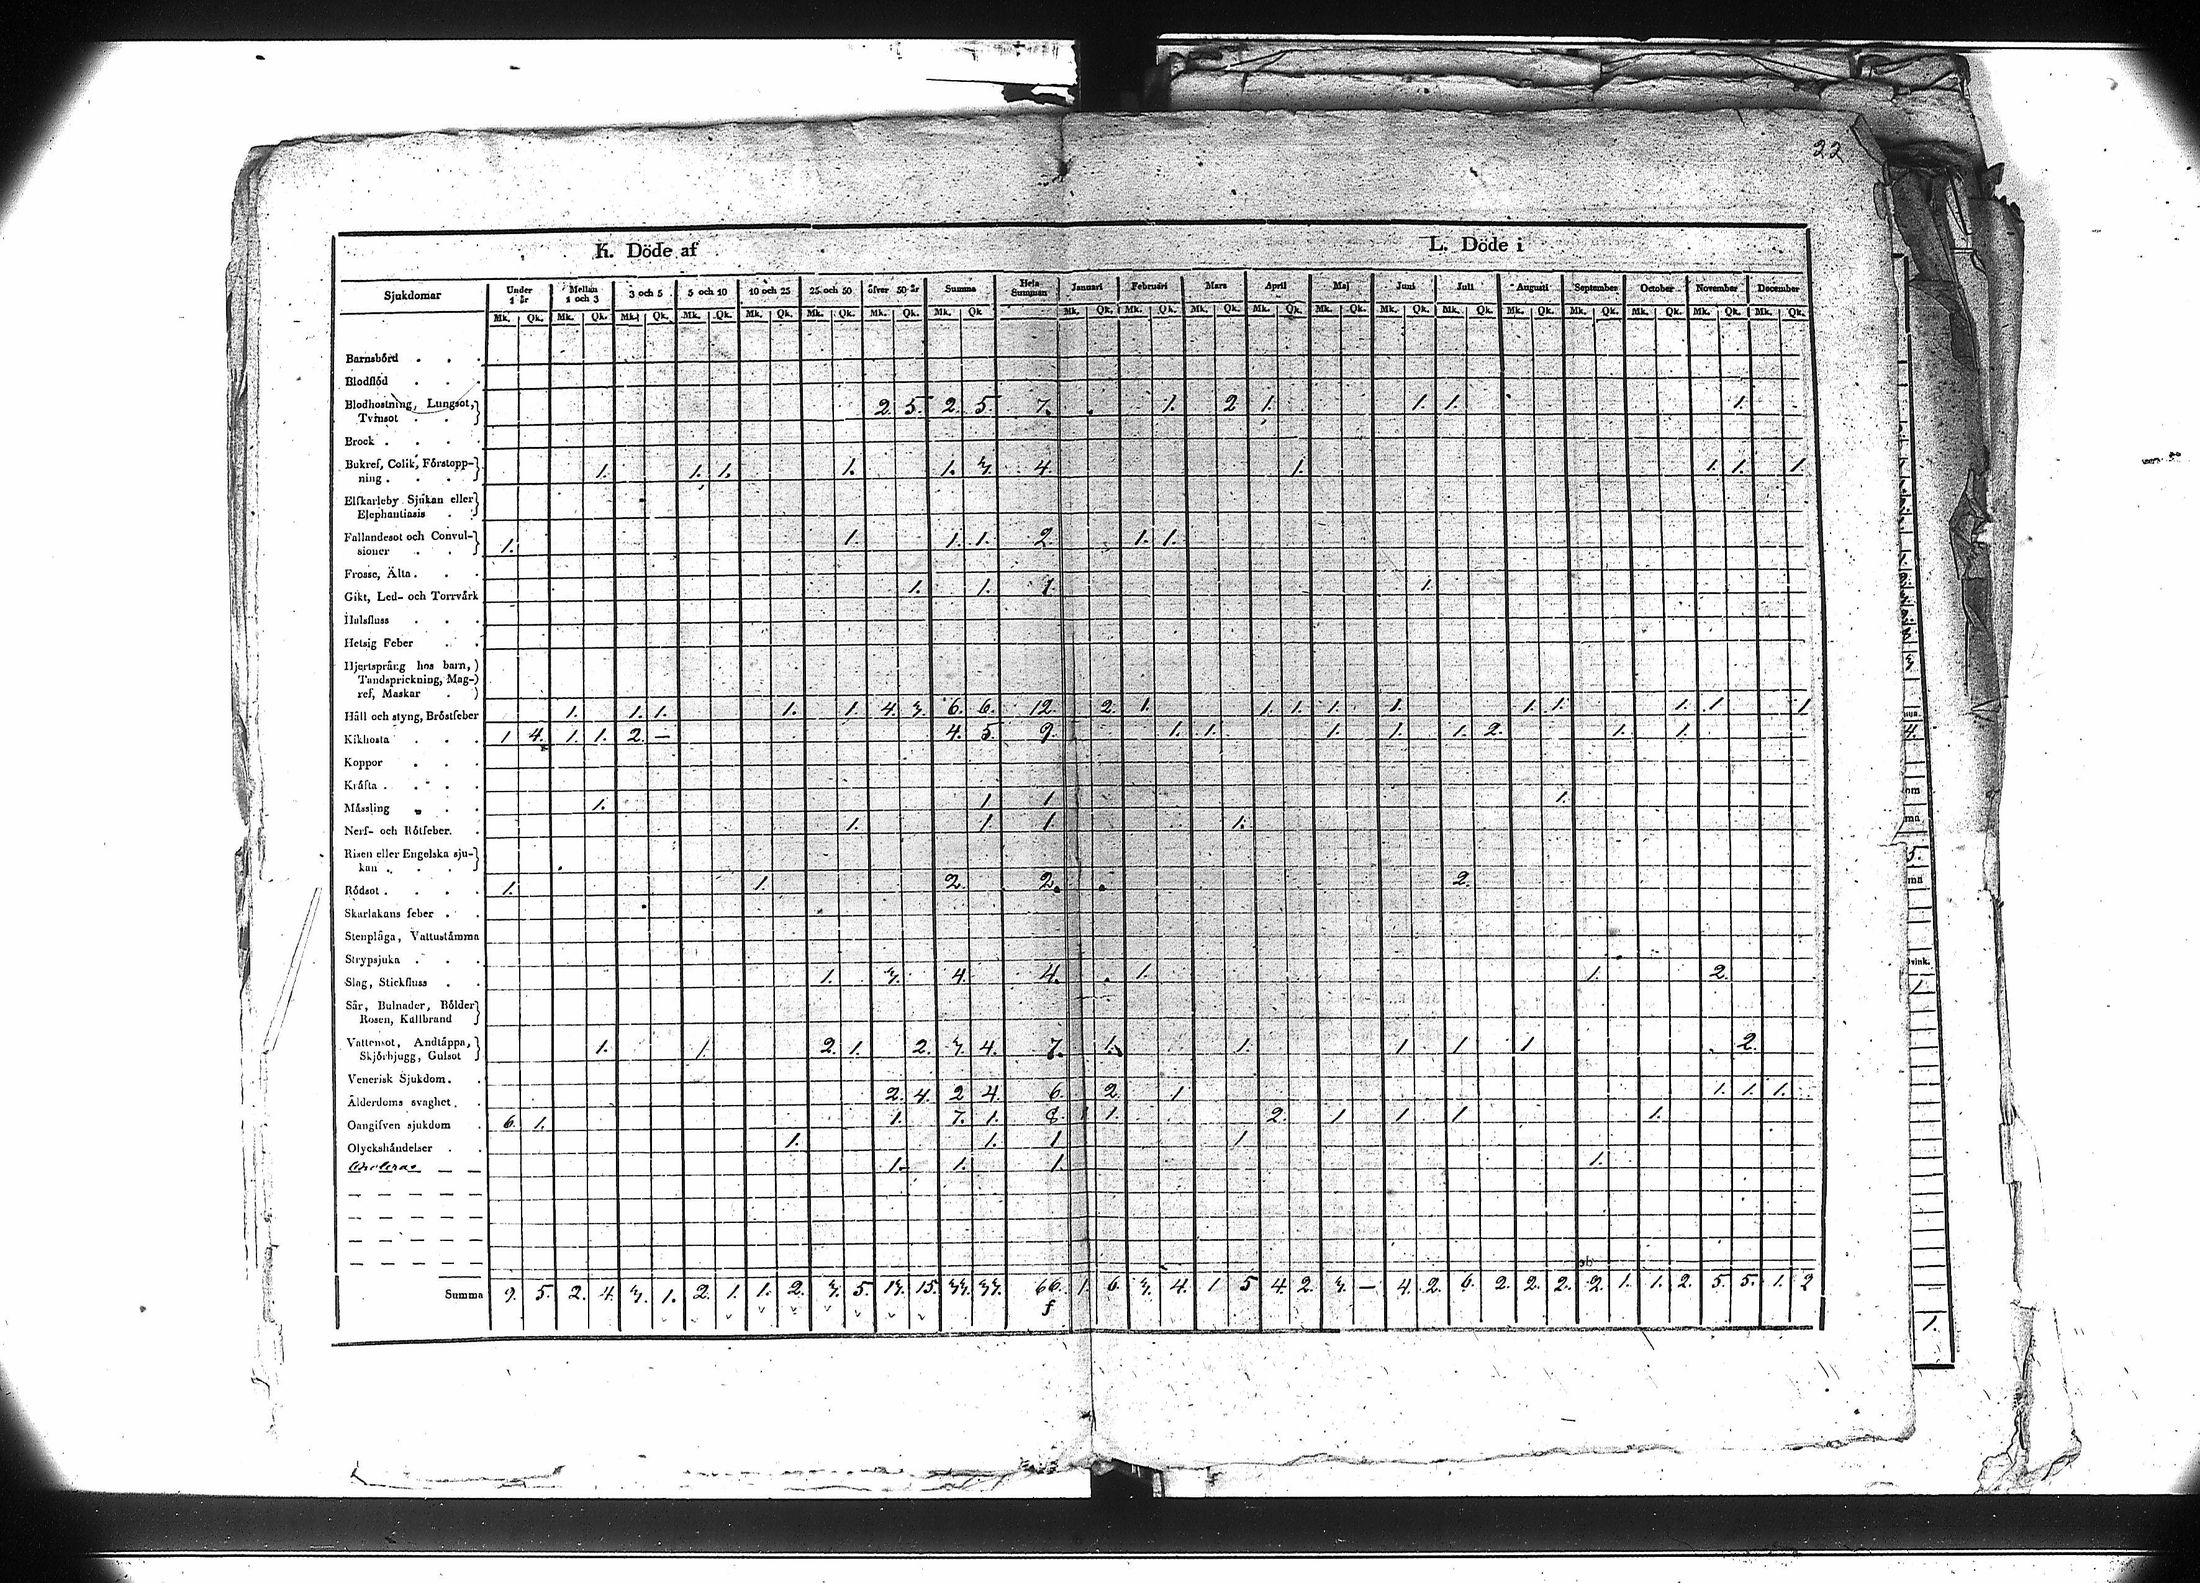 22
K. Döde af L. Döde i
Sjukdomar Under 1 år Mellan 1 och 3 3 och 5 5 och 10 10 och 25 25 och 50 öfver 50 år Summa Hela Summan Januari Februari Mars April Maj Juni Juli Augusti September October November December
Mk. Qk. Mk. Qk. Mk. Qk. Mk. Qk. Mk. Qk. Mk. Qk. Mk. Qk. Mk. Qk. Mk. Qk. Mk. Qk. Mk. Qk. Mk. Qk. Mk. Qk. Mk. Qk. Mk. Qk. Mk. Qk. Mk. Qk. Mk. Qk. Mk. Qk. Mk. Qk.
Barnsbörd . . .
Blodflöd . . .
Blodhostning, Lungsot,
Tvinsot . . 2. 5. 2. 5. 7. 1. 2 1. 1. 1. 1.
Brock . . . .
Bukref, Colik, Förstopp-
ning . . . . 1. 1. 1. 1. 1. 3. 4. 1. 1. 1. 1
Elfkarleby Sjukan eller
Elephantiasis . .
Fallandesot och Convul-
sioner . . 1. 1. 1. 1. 2. 1. 1.
Frosse, Älta . . .
Gikt, Led- och Torrvärk 1. 1. 1. 1.
Halsfluss . . .
Hetsig Feber . .
Hjertsprång hos barn,
Tandsprickning, Mag-
ref, Maskar .
Håll och styng, Bröstfeber 1. 1. 1. 1. 1. 4. 3. 6. 6. 12. 2. 1. 1. 1. 1. 1. 1. 1. 1. 1. 1
Kikhosta . . . 1 4. 1. 1. 2. — 4. 5. 9. 1. 1. 1. 1. 1. 2. 1. 1.
Koppor . . .
Kräfta . . . .
Mässling . . . 1. 1 1 1.
Nerf- och Rötfeber. . 1. 1. 1. 1.
Risen eller Engelska sju-
kan . . . .
Rödsot . . . . 1. 1. 2. 2. 2.
Skarlakans feber . .
Stenplåga, Vattustämma
Strypsjuka . . .
Slag, Stickfluss . . 1. 3. 4. 4. 1. 1. 2.
Sår, Bulnader, Bölder
Rosen, Kallbrand
Vattensot, Andtäppa,
Skjörbjugg, Gulsot 1. 1. 2. 1. 2. 3. 4. 7. 1. 1. 1 1 1 2.
Venerisk Sjukdom. .
Ålderdoms svaghet . . 2. 4. 2 4. 6. 2. 1 1. 1. 1.
Oangifven sjukdom . 6. 1. 1. 7. 1. 8. 1 1. 2. 1 1. 1 1.
Olyckshändelser . . 1. 1. 1 1.
Choleras — — 1. 1. 1. 1.
Summa 9. 5. 2. 4. 3. 1. 2. 1. 1. 2. 3. 5. 13. 15. 33. 33. 66. 1. 6. 3. 4. 1 5 4. 2. 3. — 4. 2. 6. 2. 2. 2. 2. 1. 1. 2. 5. 5. 1. 2
4.
om
ma
5.
ma
vink.
1
1.